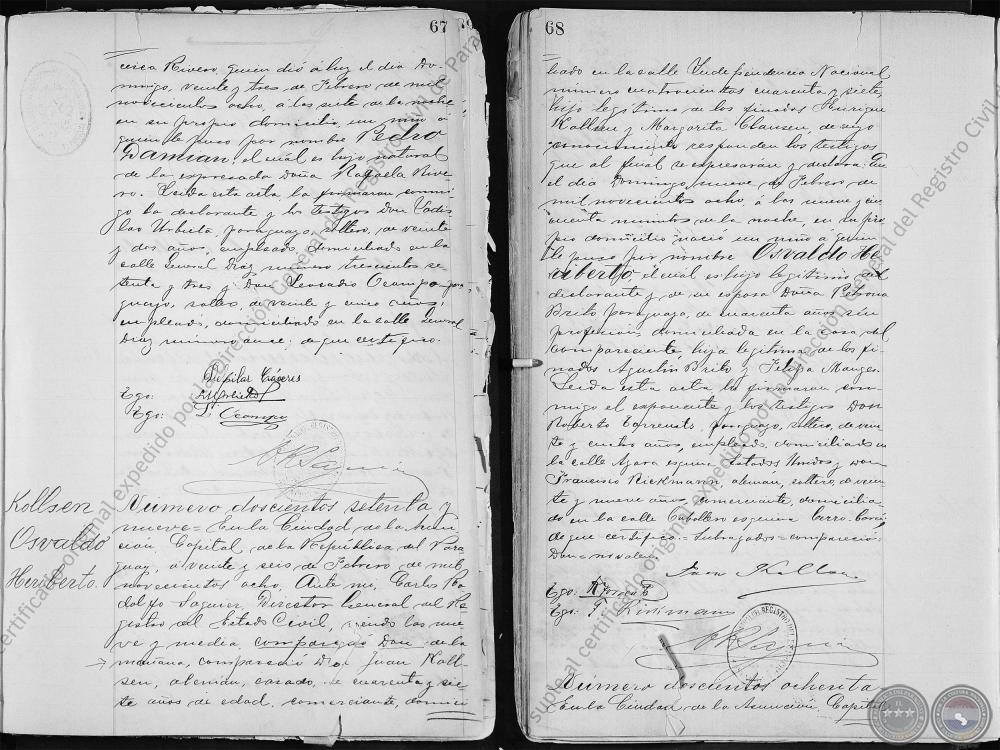 67
cisca Rivero, quien dió á luz el dia Do-
mingo, veinte y tres de Febrero de mil
novecientos ocho, á las siete de la noche
en su propio domicilio, un niño á
quien le puso por nombre Pedro
Damian, el cuál es hijo natural
de la expresada Doña Rafaela Rive-
ro. Leida esta acta la firmaron conmi-
go la declarante y los testigos Don Ladis
lao Urbieta, paraguayo, soltero, de veinte
y dos años, empleado, domiciliado en la
calle General Diaz número trescientos se-
tenta y tres y Don Leocadio Ocampo, para-
guayo, soltero, de veinte y cinco años,
empleado, domiciliado en la calle General
Diaz número once; de que certifico.
Pilar Cáceres
Tgo:
Tgo: L. Ocampo
Kollsen
Osvaldo
Heriberto.
Número doscientos setenta y
nueve = En la Ciudad de la Asun-
ción, Capital de la República del Para-
guay, á veinte y seis de Febrero de mil
novecientos ocho. Ante mi, Carlos Ro-
dolfo Saguier, Director General del Re-
gistro del Estado Civil, siendo las nue-
ve y media compareció Don de la
mañana, compareció Don Juan Koll-
sen, alemán, casado, de cuarenta y sie
te años de edad, comerciante, domici
68
liado en la calle Independencia Nacional
número cuatrocientos cuarenta y siete,
hijo legítimo de los finados Henrique
Kollsen y Margarita Clausen, de cuyo
conocimiento responden los testigos
que al final se expresarán y declara: Que
el dia Domingo, nueve de Febrero de
mil novecientos ocho, á las nueve y cin
cuenta minutos de la noche, en su pro
pio domicilio nació un niño á quien
le puso por nombre Osvaldo He-
riberto, el cuál es hijo legítimo del
declarante y de su esposa Doña Petrona
Brito, paraguaya, de cuarenta años, sin
profesión, domiciliada en la casa del
compareciente, hija legitima de los fi-
nados Agustin Brito y Felipa
Leida esta acta la firmaron con-
migo el exponente y los testigos Don
Roberto paraguayo, soltero, de vein-
te y cuatro años, empleado, domiciliado en
la calle Azara esquina Estados Unidos y Don
Francisco Rickmann, aleman, soltero, de vein
te y nueve años, comerciante, domicilia-
do en la calle Caballero esquina Cerro-Corá,
de que certifico = Subrayados = compareció
Don = no valen
Juan Kollsen
Tgo:
Tgo: F. Rickmann
Número doscientos ochenta
En la Ciudad de la Asunción, Capital